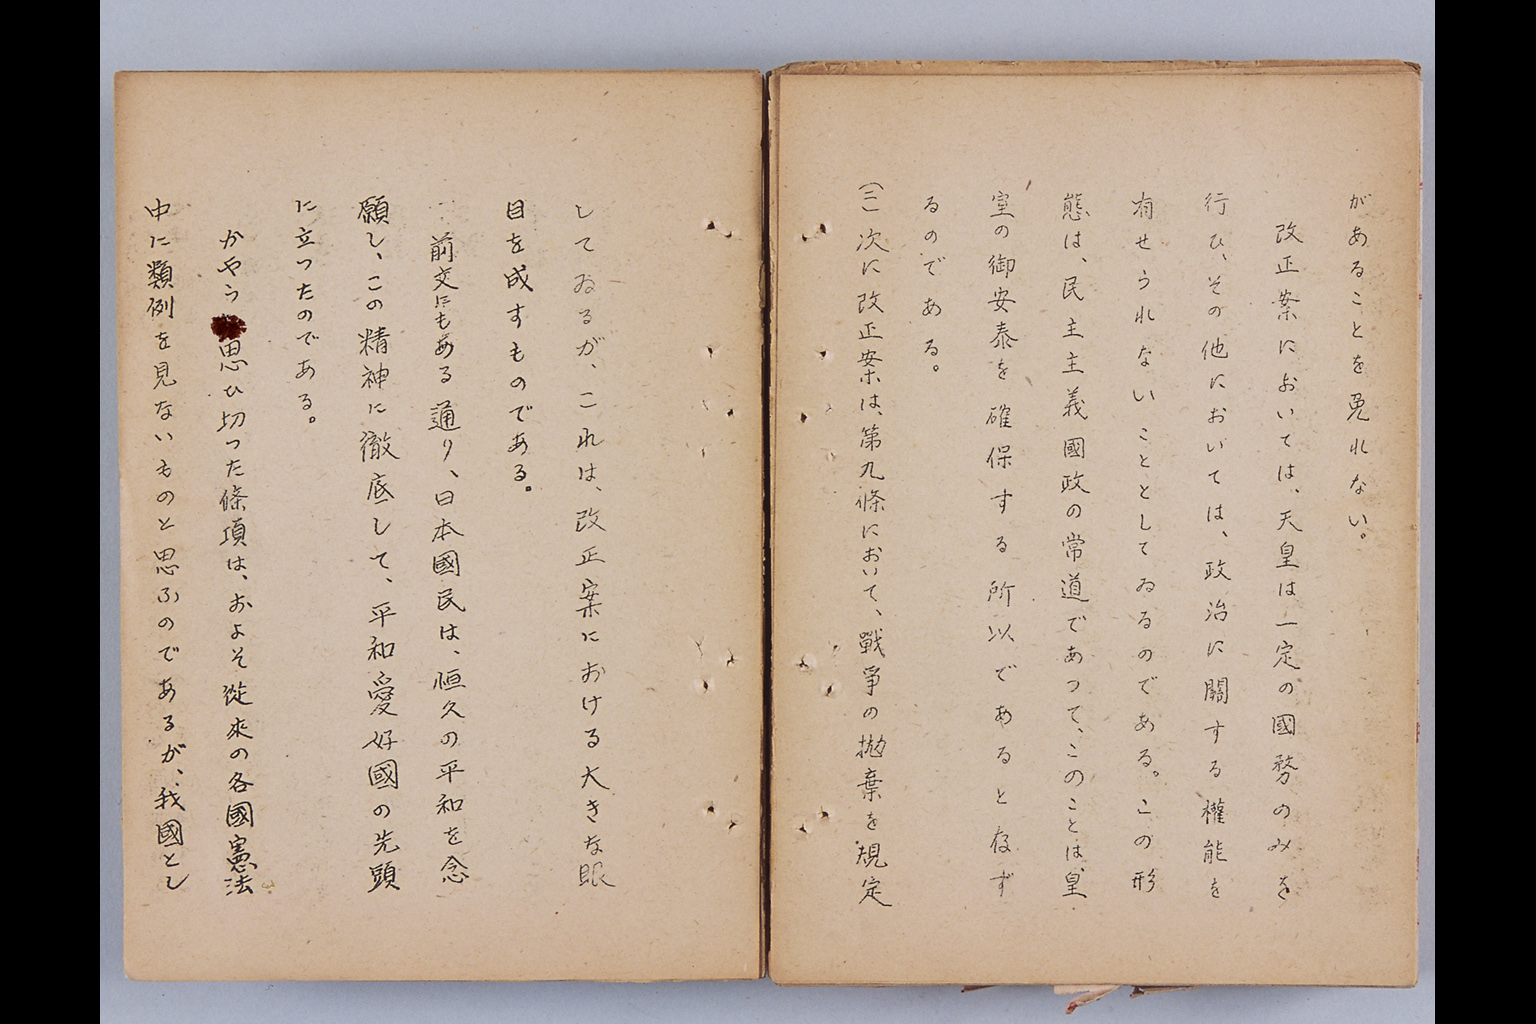 があることを免れない。
改正案においては、天皇は一定の國務のみを
行ひ、その他においては、政治に關する權能を
有せられないこととしてゐるのである。この形
態は、民主主義國政の常道であつて、このことは皇
室の御安泰を確保する所以であると存ず
るのである。
(二)次に改正案は、第九條において、戰爭の抛棄を規定
してゐるが、これは、改正案における大きな眼
目を成すものである。
前文にもある通り、日本國民は、恒久の平和を念
願し、この精神に徹底して、平和愛好國の先頭
に立つたのである。
かやう思ひ切つた條項は、およそ從來の各國憲法
中に類例を見ないものと思ふのであるが、我國とし